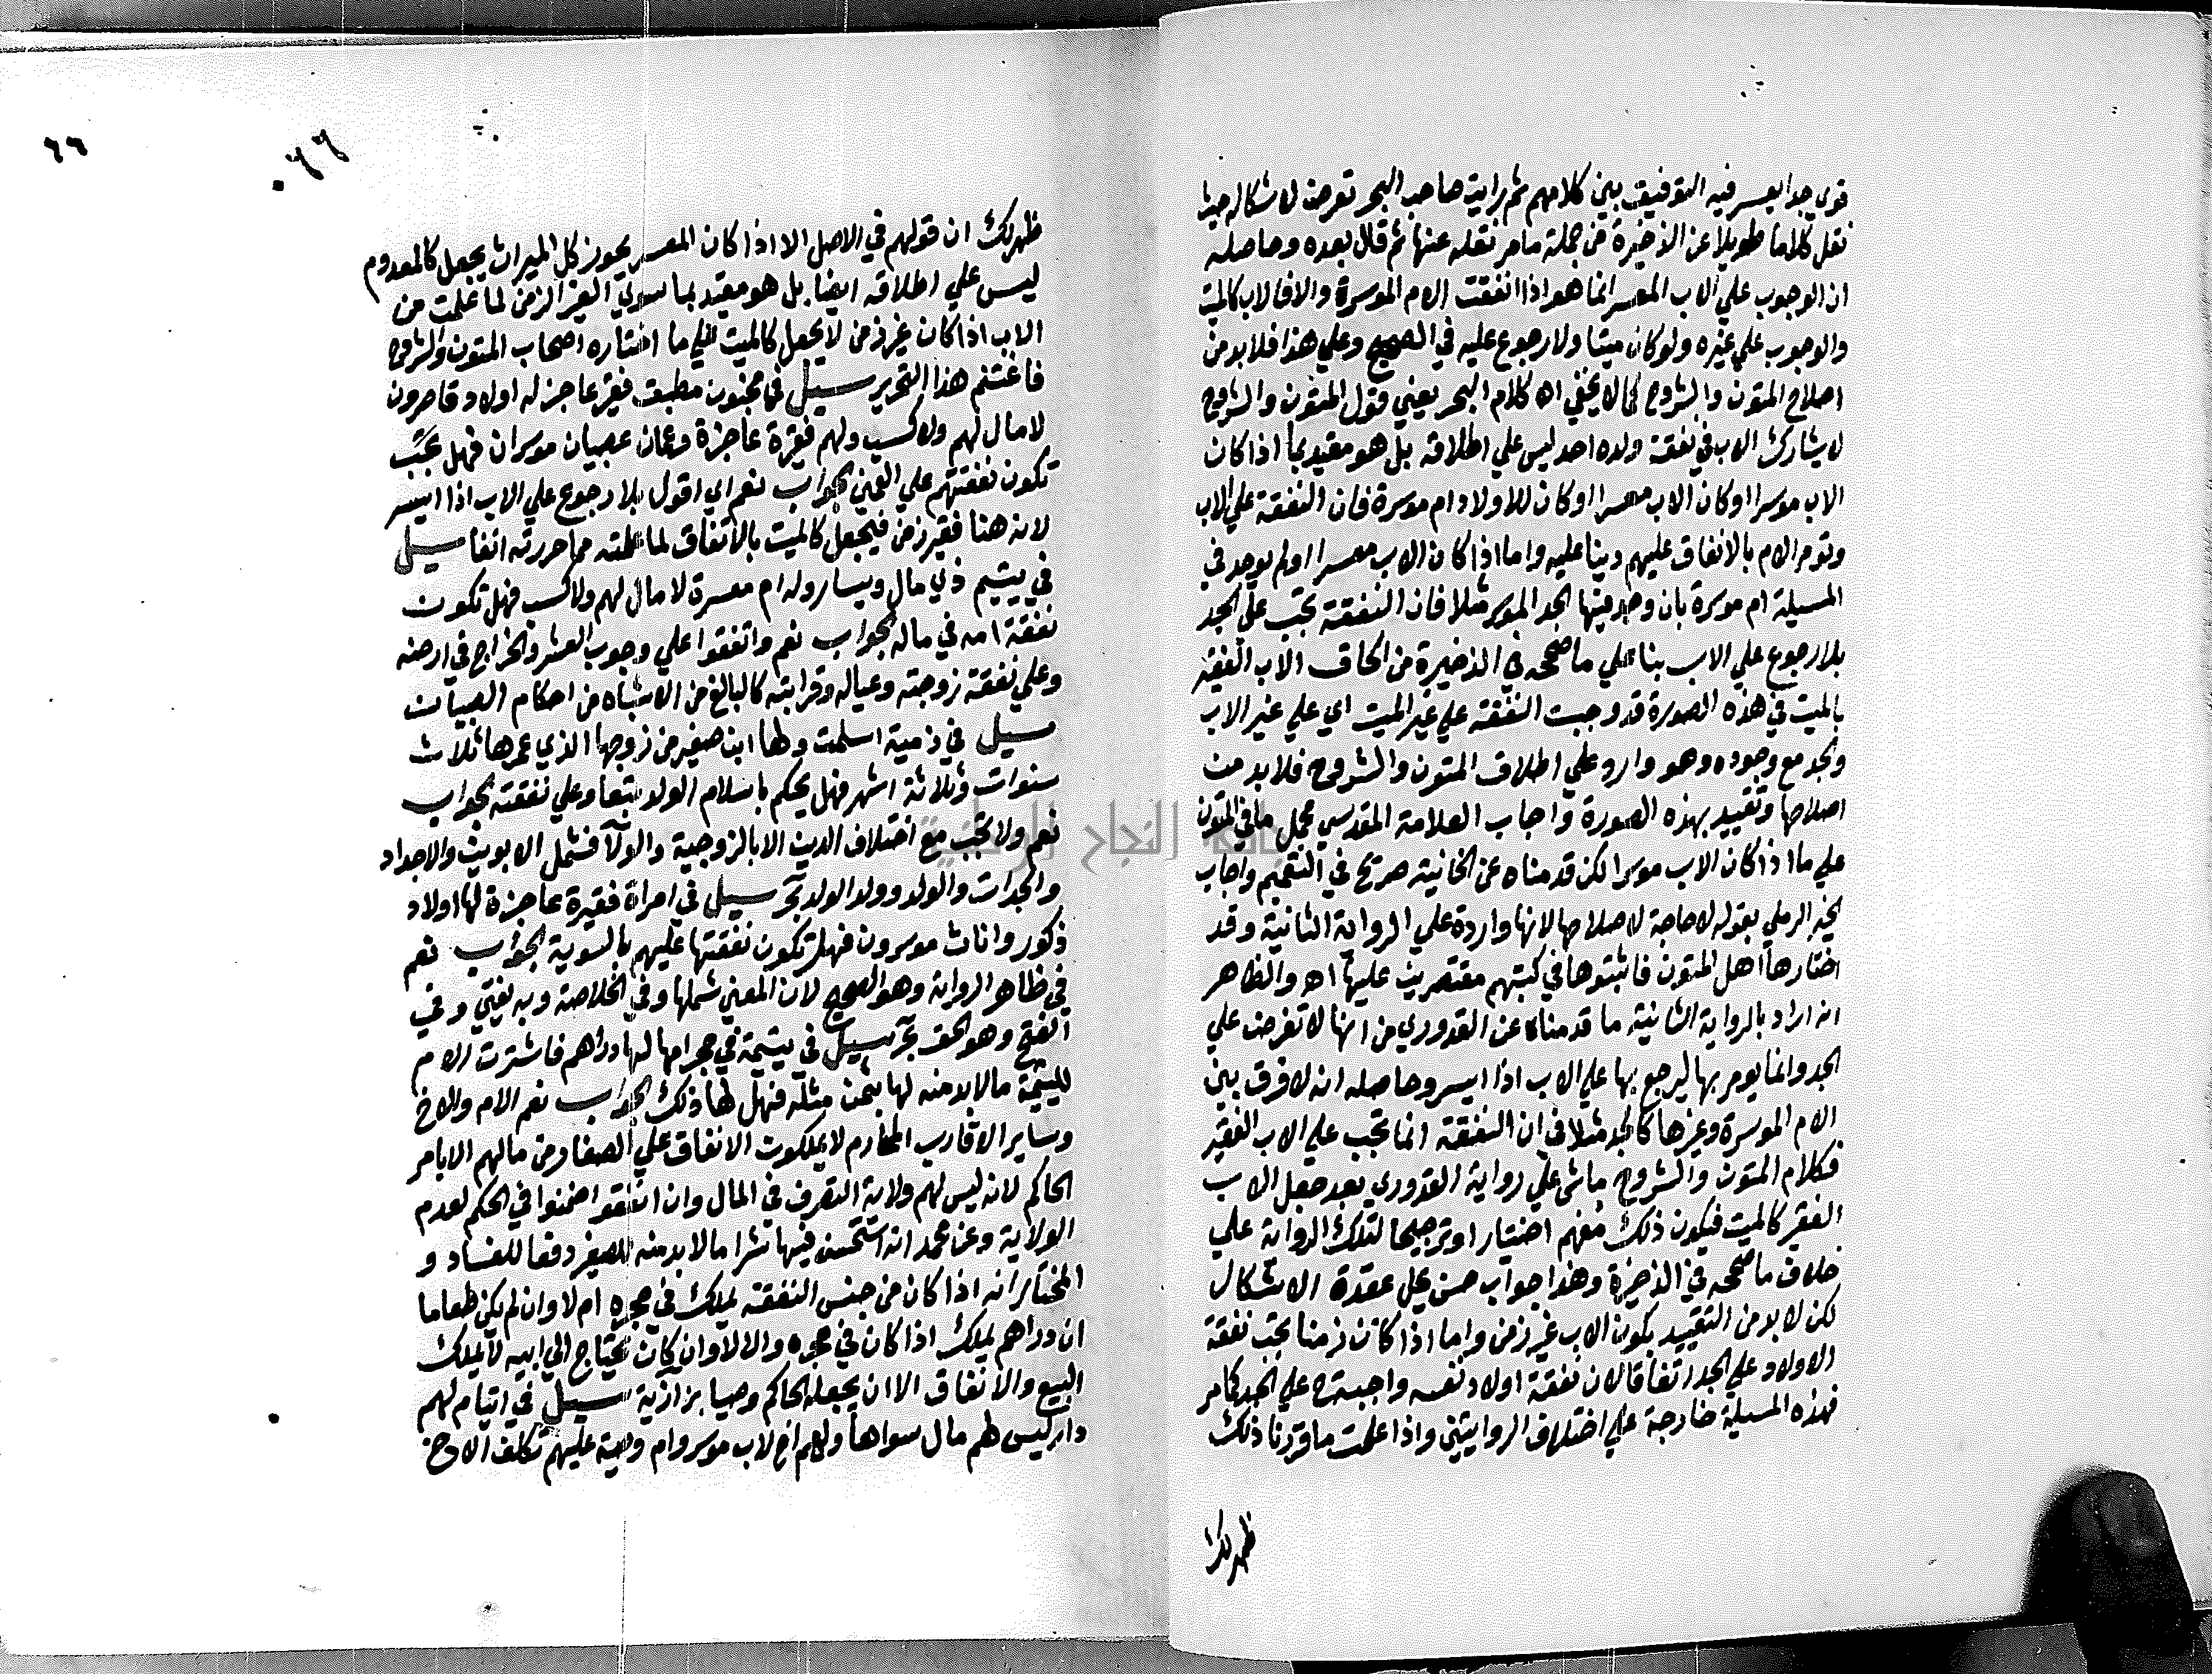 قوي جدا يعسر فيه التوفيق بين كلامهم ثم رايت صاحب البحر تعرض لاشكاله حيث
نقل كلاما طويلا عن الذخيرة من جملة مامر نقله عنها ثم قال بعده وحاصله
ان الوجوب علي الاب المعسر انما هو اذا انفقت الام الموسرة والا فالاب كالميت
والوجوب علي غيره ولو كان ميتا ولا رجوع عليه في الصحيح وعلي هذا فلا بد من
اصلاح المتون والشروح كما لا يخفي اه كلام البحر يعني قول المتون والشروح
لا يشارك الاب في نفقة ولده احد ليس علي اطلاقه بل هو مقيد بما اذا كان
الاب موسرا او كان الاب معسرا او كان للاولاد ام موسرة فان النفقة علي الاب
وتومر الام بالانفاق عليهم دينا عليه واما اذا كان الاب معسرا ولم يوجد في
المسيلة ام موسرة بان وجد فيها الجد الموسر مثلا فان النفقة تجب علي الجد
بلا رجوع علي الاب بنا علي ما صححه في الذخيرة من الحاق الاب الفقير
بالميت في هذه الصورة قد وجبت النفقة علي غير الميت اي علي غير الاب
والجد مع وجوده وهو وارد علي اطلاق المتون والشروح فلا بد من
اصلاحها وتقييد بهذه الصورة واجاب العلامة المقدسي بحمل ما في المتون
علي ما اذا كان الاب موسرا لكن قدمناه عن الخانية صريح في التعميم واجاب
الخير الرملي بقوله لا حاجة لاصلاحها لانها واردة علي الرواية الثانية وقد
اختارها اهل المتون فاثبتوها في كتبهم مقتصرين عليها اه والظاهر
انه اراد بالرواية الثانية ما قدمناه عن القدوري من انها لا تفرض علي
الجد وانما يومر بها ليرجع بها علي الاب اذا ايسر وحاصله انه لا فرق بين
الام الموسرة وغيرها كالجد مثلا في ان النفقة انما تجب علي الاب الفقير
فكلام المتون والشروح ماشي علي رواية القدوري بعد جعل الاب
الفقير كالميت فيكون ذلك منهم اختيارا وترجيحا لتلك الرواية علي
خلاف ما صححه في الذخيرة وهذا جواب حسن يحل عقدة الاشكال
لكن لا بد من التقييد بكون الاب غير زمن واما اذا كان زمنا تجب نفقة
الاولاد علي الجد اتفاقا لان نفقة اولاد نفسه واجبة علي الجد كما مر
فهذه المسيلة خارجة علي اختلاف الروايتين واذا علمت ما قررنا ذلك
ظهر لك
٦٦
٦٦
ظهر لك ان قولهم في الاصل الا اذا كان المعسر يحوز كل الميراث يجعل كالمعدوم
ليس علي اطلاقه ايضا بل هو مقيد بما سوي الغير الزمن لما علمت من
الاب اذا كان غير زمن لا يجعل كالميت علي ما اختاره اصحاب المتون والشروح
فاغتنم هذا التحرير سيل في مجنون مطبق فقير عاجز له اولاد قاصرون
لا مال لهم ولا كسب ولهم فقيرة عاجزة وعمان عصبيان موسران فهل تجب
تكون نفقتهم علي العمين الجواب نعم اي اقول بلا رجوع علي الاب اذا ايسر
لانه هنا فقير زمن فيجعل كالميت بالاتفاق لما علمته مما حررته انفا سيل
في يتيم ذي مال ويسار وله ام معسرة لا مال لهم ولا كسب فهل تكون
نفقة امه في ماله الجواب نعم واتفقوا علي وجوب العشر والخراج في ارضه
وعلي نفقة زوجته وعياله وقرابته كالبالغ من الاشباه من احكام الصبيان
سيل في ذمية اسلمت ولها ابن صغير من زوجها الذي عمرها ثلاث
سنوات وثلاثة اشهر فهل يحكم باسلام الولد تبعا وعلي نفقته الجواب
نعم ولا تجب مع اختلاف الدين الا بالزوجية والولا فشمل الابوين والاجداد
والجدات والولد وولد الولد بحر سيل في امراة فقيرة عاجزة لها اولاد
ذكور واناث موسرون فهل تكون نفقتها عليهم بالسوية الجواب نعم
في ظاهر الرواية وهو الصحيح لان المعني شملها وفي الخلاصة وبه يفتي وفي
الفتح وهو الحق بحر سيل في يتيمة في حجر امها لها دراهم فاشترت الام
لليتيمة ما لا بد منه لها بثمن مثله فهل لها ذلك الجواب نعم الام والاخ
وساير الاقارب المحارم لا يملكون الانفاق علي الصغار من مالهم الا بامر
الحاكم لانه ليس لهم ولاية التصرف في المال وان انفقوا ضمنوا في الحكم لعدم
الولاية وعن محمد انه استحسن فيها شرا ما لا بد منه للصغير دفعا للفساد و
المختار انه اذا كان من جنس النفقة يملك في حجره ام لا وان لم يكن طعاما
ان دراهم يملك اذا كان في حجره والا لا وان كان يحتاج الي ابيه لا يملك
البيع والانفاق الا ان يجعله الحاكم وصيا بزازية سيل في ايتام لهم
دار ليس لهم مال سواها ولهم اخ لاب موسر وام وصية عليهم تكلف الاخ